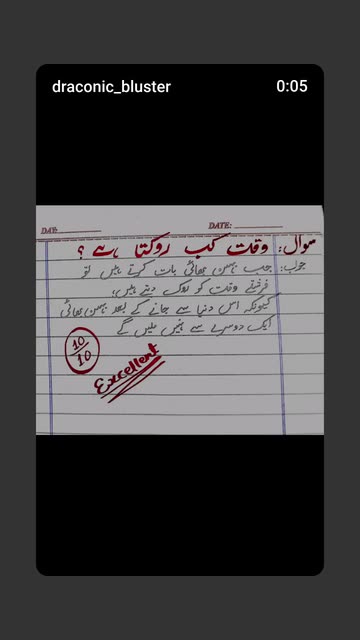 draconic_bluster
0:05
DAY:
DATE:
سوال: وقت کب روکتا ہے ؟
جواب: جب بہن بھائی بات کرتے ہیں تو
فرشتے وقت کو روک دیتے ہیں،
کیونکہ اس دنیا سے جانے کے بعد بہن بھائی
ایک دوسرے سے نہیں ملیں گے
10/10
Excellent